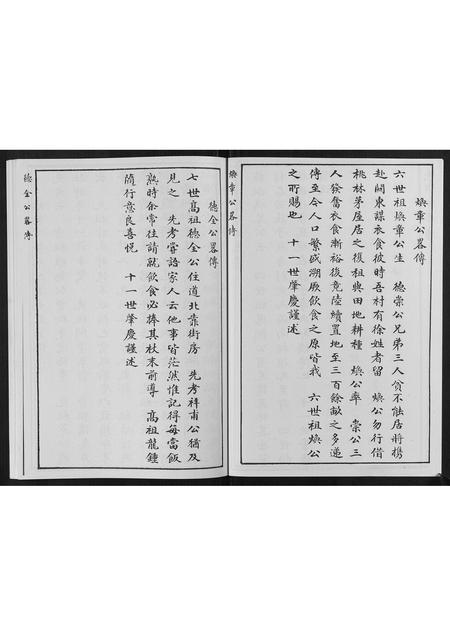 煥章公畧傳
六世祖煥章公生　德崇公兄弟三人貧不能居將携
赴關東謀衣食彼時吾村有徐姓者留　煥公勿行借
桃林茅屋居之復租與田地耕種　煥公率　崇公三
人發奮衣食漸裕後竟陸續置地至三百餘畝之多遞
傳至今人口繁盛溯厥飲食之原皆我　六世祖煥公
之所賜也　十一世肇慶謹述
煥章公畧傳
德全公畧傳
七世高祖德全公住道北靠街房　先考祥甫公猶及
見之　先考嘗語家人云他事皆茫然惟記得每當飯
熟時余常往請就飲食必捧其杖末前導　高祖龍鍾
隨行意良喜悅　十一世肇慶謹述
德全公畧傳